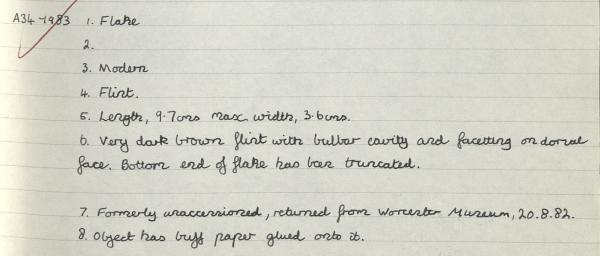 A34-1983 1. Flake
2.
3. Modern
4. Flint.
5. Length, 9.7cms max. width, 3.6cms.
6. Very dark brown flint with bulbar cavity and facetting on dorsal
face. Bottom end of flake has been truncated.
7. Formerly unaccessioned, returned from Worcester Museum, 20.8.82.
8. Object has buff paper glued onto it.